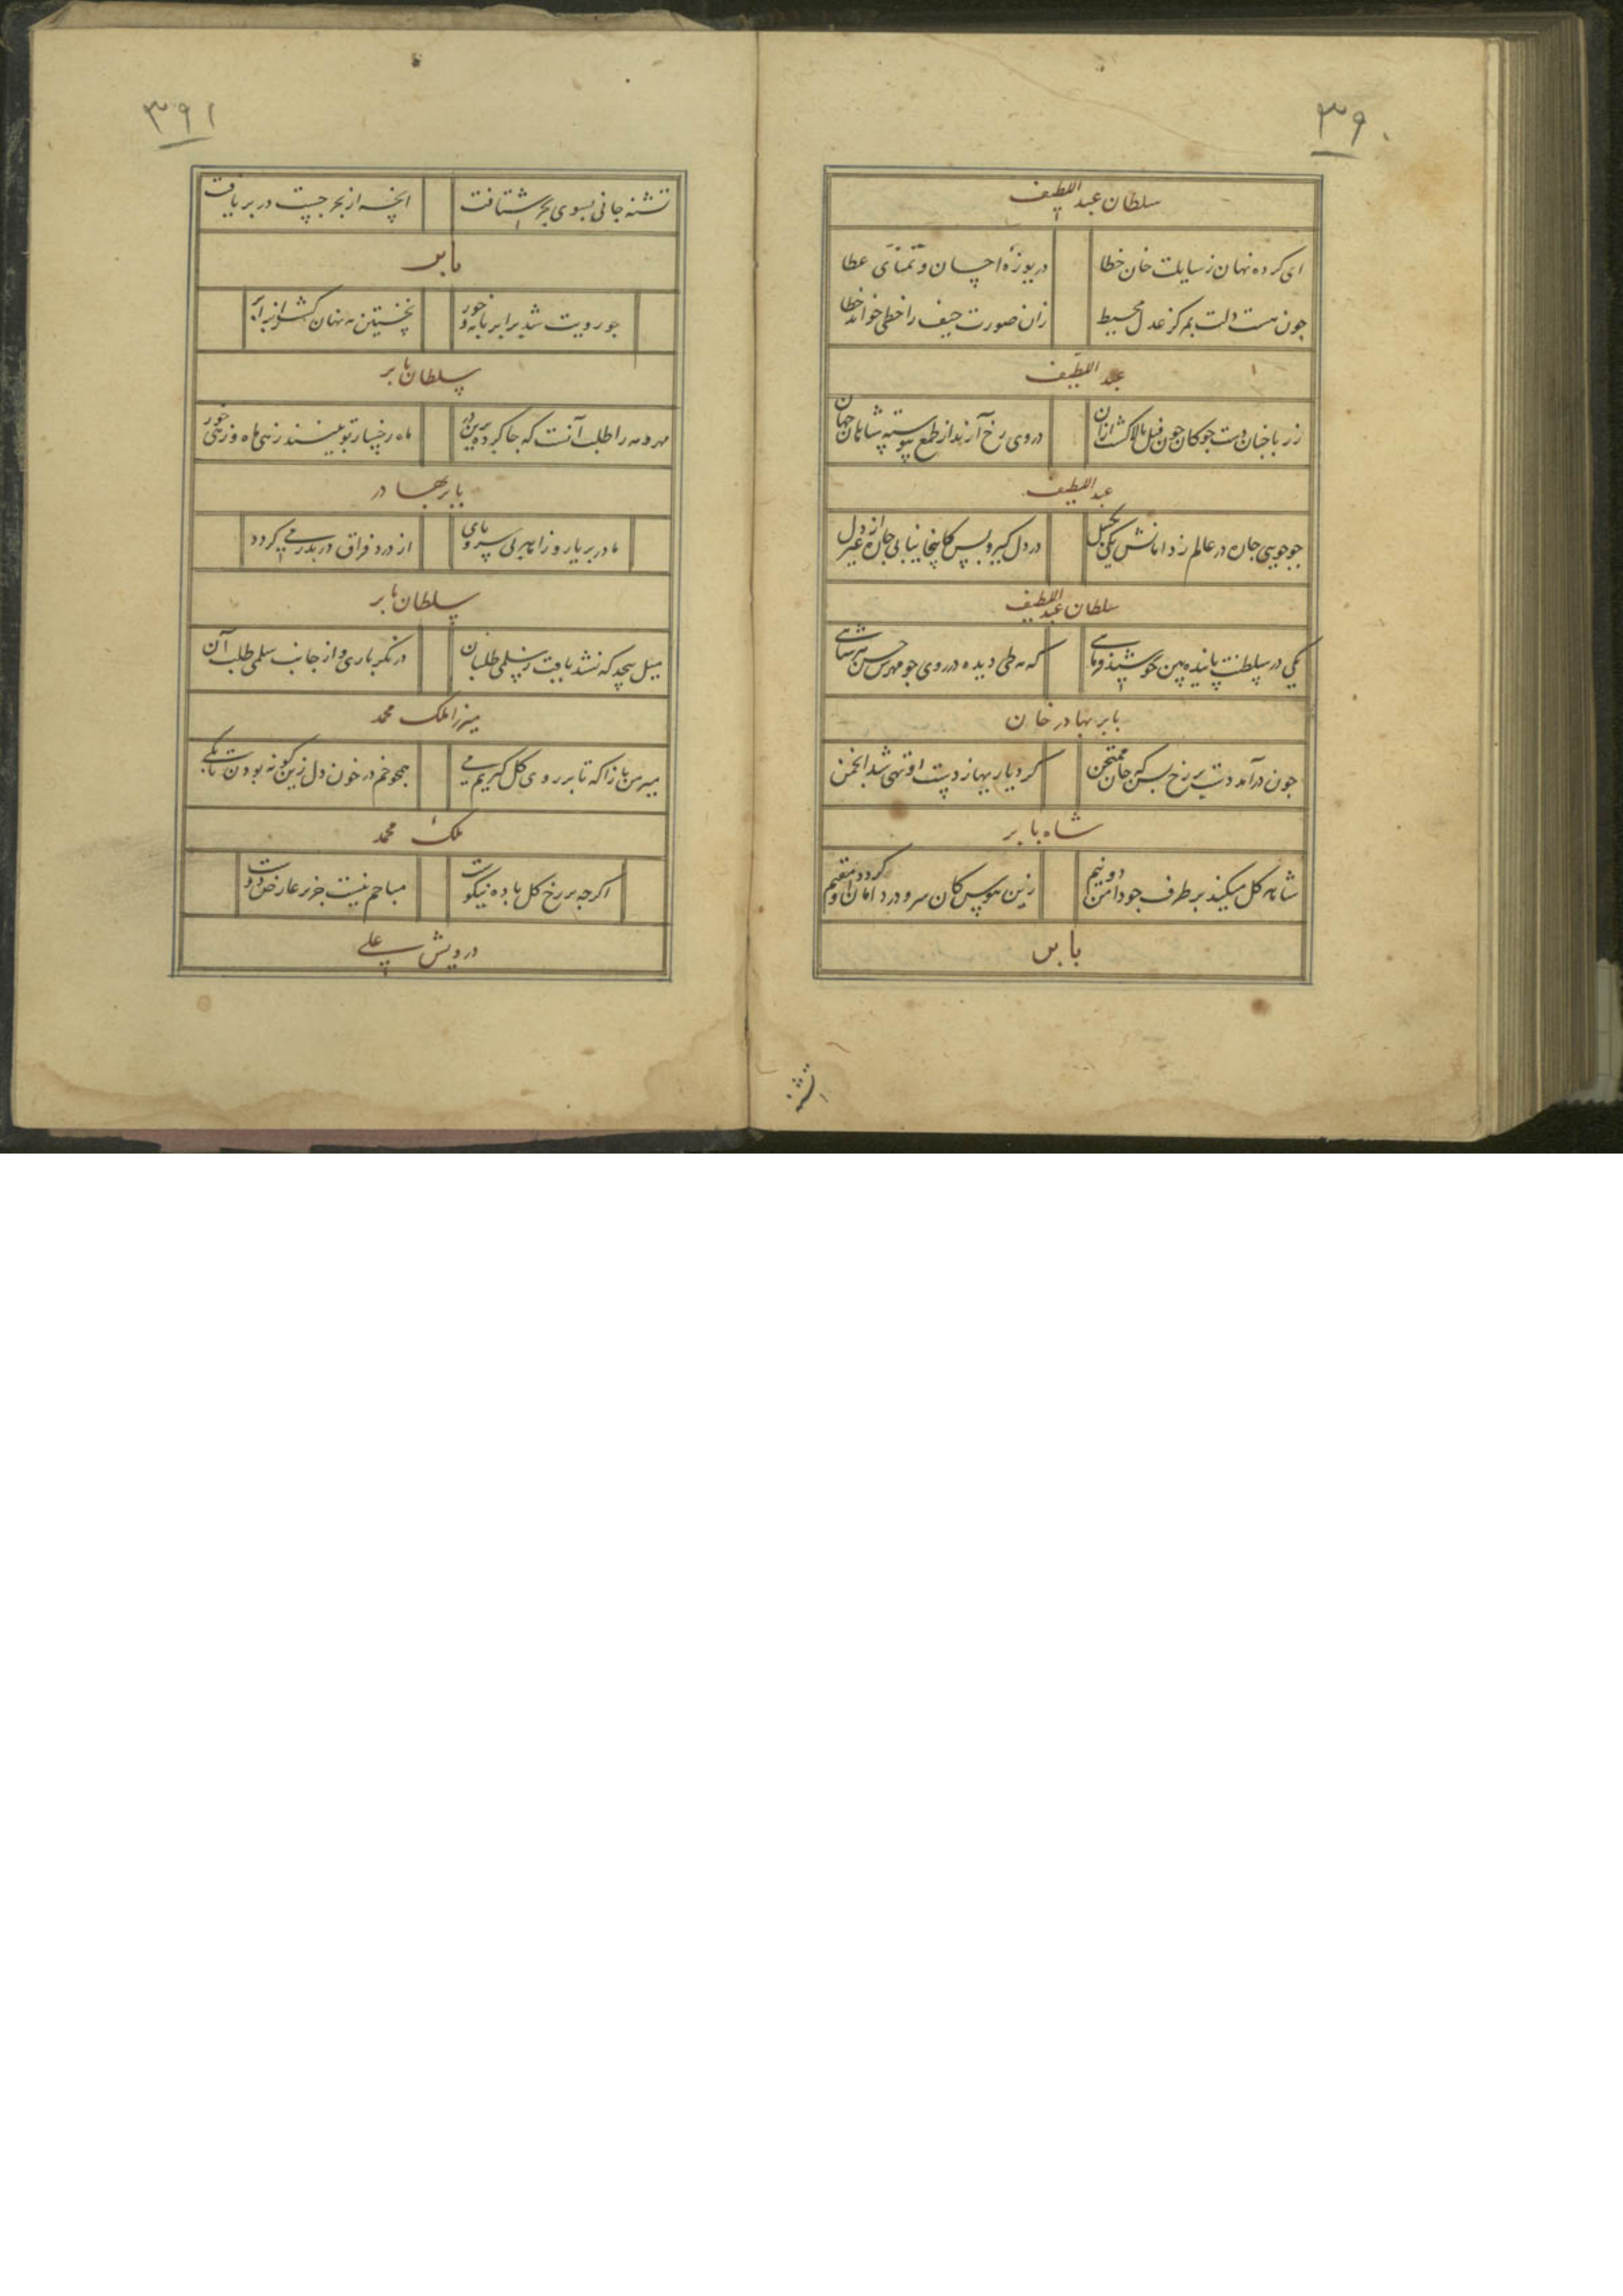 ۳۹۰
سلطان عبد اللطیف
ای کرده نهان ز سایلت خان خطا
دریوزهٔ احسان و تمنّای عطا
جون هست دلت بمرکز عدل محیط
زان صورت حیف را خطی خواند خطا
عبد اللطیف
زر باخبان دست جو کان جون فیل بالا کشت ازان
در وی رخ آرند از طمع پیوسته شاهان جهان
عبد اللطیف
جو جویی جان در عالم ز دامانش یکی بکسل
در دل کیر و بس کانجا نیابی جان از غیر دل
سلطان عبد اللطیف
یکی در سلطنت پاینده بین کو
که مه طی دیده در روی جو مهرش حسن
بابر بهادر خان
جون درآمد دست بر رخ بسکه جان ممتحن
کرد یار بها ز دست او تهی شد انجمن
شاه بابر
شانه کل میکند بر طرف جو دامن دو نیم
زین هوس کان سرو در دامان او کردد مقیم
بابر
تشنه
۳۹۱
تشنه جانی بسوی بحر شتافت
انچه از بحر جست در بر یافت
بابر
جو رویت شد برابر با مه و خور
نخستین مه نهان کشت از برابر
سلطان بابر
مهر و مه را طلب آنست که جا کرده برین در
ماه رخسار تو بینند زهی ماه و زهی خور
بابر بهادر
ما در بر یار و زاهد بی سر و پای
از درد فراق در بدر می کردد
سلطان بابر
میل بیحد که نشد یافت ز سلمی طلبان
در نکر باری و از جانب سلمی طلب آن
میرزا ملک محمد
میر من باز آ که تا بر روی کل کیریم می
همجو خم در خون دل زین کونه بودن تا بکی
ملک محمد
اکرجه بر رخ کل باده نیکوست
مباحم نیست جز بر عارض دوست
درویش علی